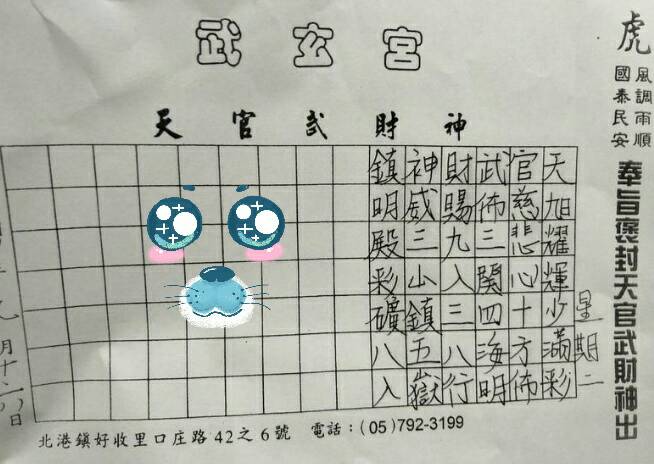 武玄宮
天官武財神
虎
風調雨順
國泰民安
奉旨褒封天官武財神出
星期二
天旭耀輝少滿彩
官慈悲心十方佈
武佈三開四海明
財賜九入三八行
神威三山鎮五嶽
鎮明殿彩礦八入
月十日
北港鎮好收里口庄路42之6號 電話：(05)792-3199